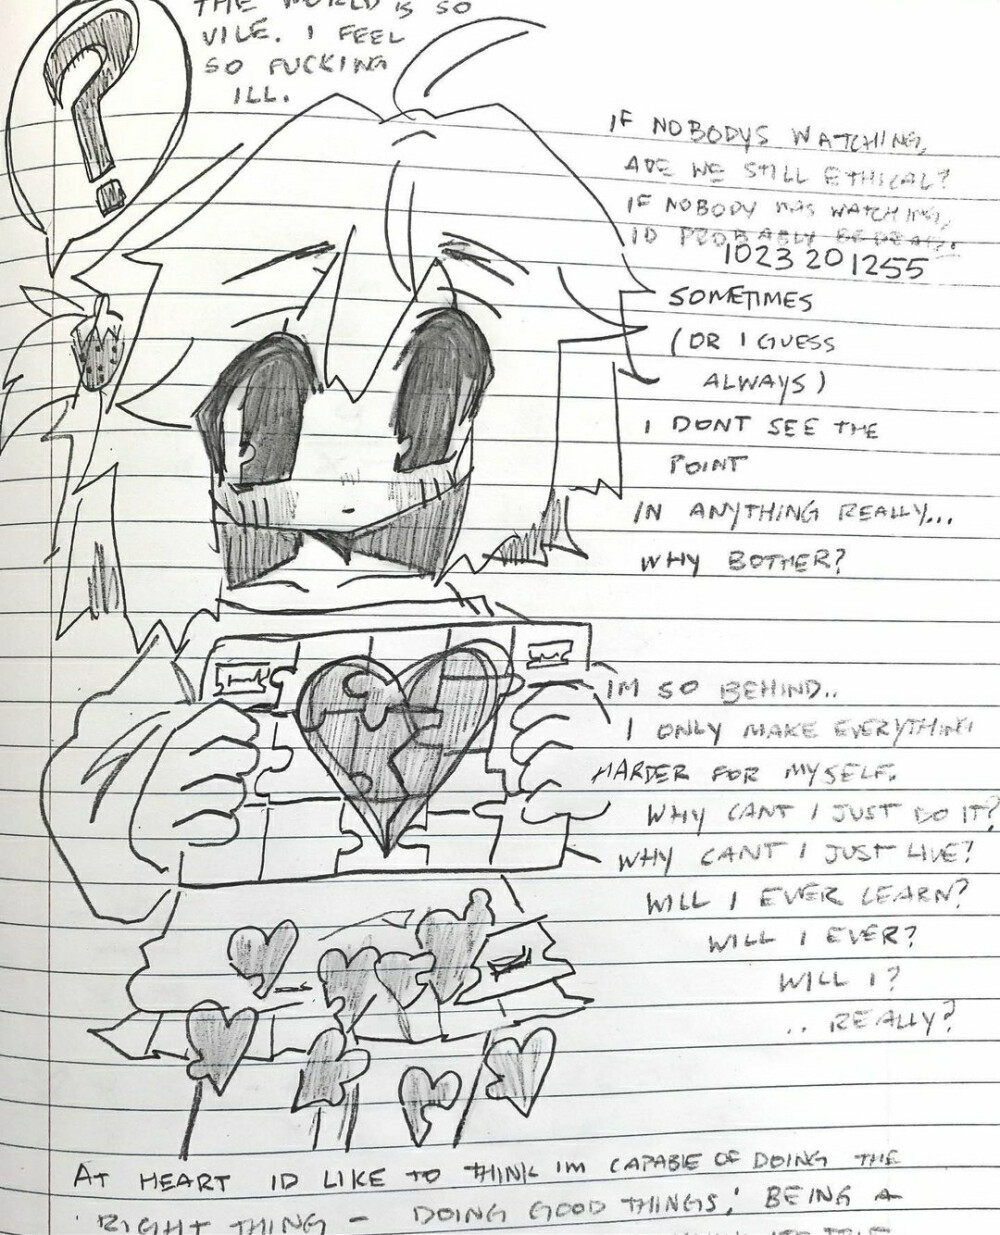 THE WORLD IS SO
VILE. I FEEL
SO FUCKING
ILL.
?
IF NOBODYS WATCHING,
ARE WE STILL ETHICAL?
IF NOBODY WAS WATCHING,
ID PROBABLY BE DEAD.
1023201255
SOMETIMES
(OR I GUESS
ALWAYS)
I DONT SEE THE
POINT
IN ANYTHING REALLY...
WHY BOTHER?
IM SO BEHIND..
I ONLY MAKE EVERYTHING
HARDER FOR MYSELF.
WHY CANT I JUST DO IT?
WHY CANT I JUST LIVE?
WILL I EVER LEARN?
WILL I EVER?
WILL I?
.. REALLY?
AT HEART ID LIKE TO THINK IM CAPABLE OF DOING THE
RIGHT THING - DOING GOOD THINGS; BEING A